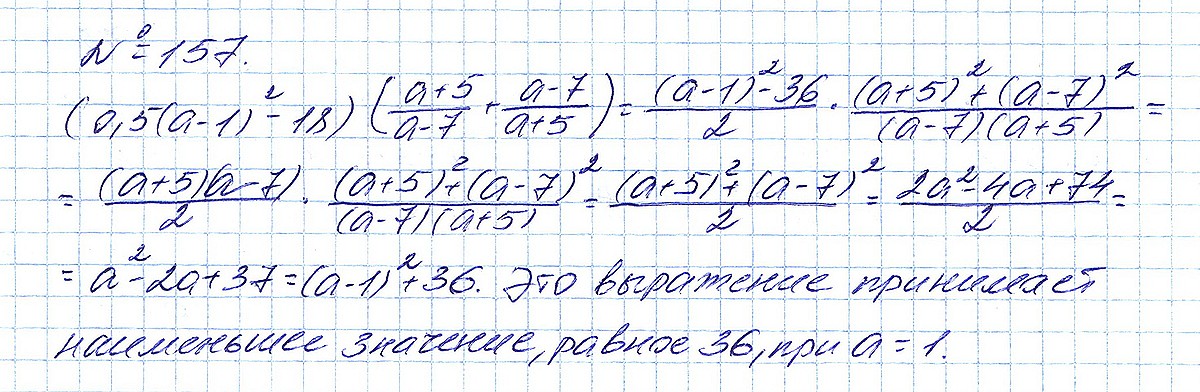 №157.
(0,5(a-1)²-18)((a+5)/(a-7)+(a-7)/(a+5))=((a-1)²-36)/2·((a+5)²+(a-7)²)/((a-7)(a+5))=
=((a+5)(a-7))/2·((a+5)²+(a-7)²)/((a-7)(a+5))=((a+5)²+(a-7)²)/2=(2a²-4a+74)/2=
=a²-2a+37=(a-1)²+36. Это выражение принимает
наименьшее значение, равное 36, при a=1.